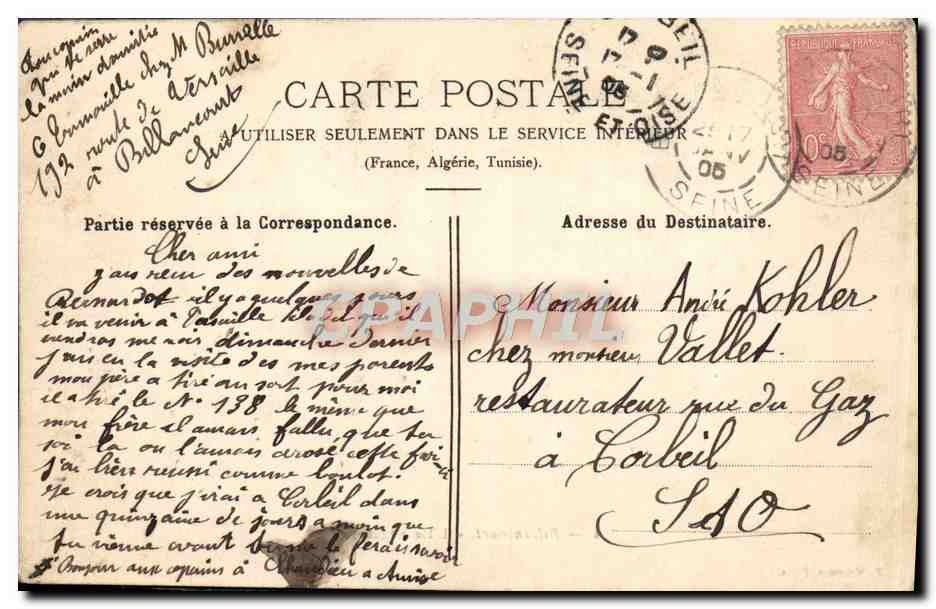 Ton copain
qui te serre
la main d'amitié
C Trimaille chez M Burrelle
192 route de Versaille
à Billancourt
Seine
CARTE POSTALE
A UTILISER SEULEMENT DANS LE SERVICE INTÉRIEUR
(France, Algérie, Tunisie).
CORBEIL
17 -1 05
SEINE ET OISE
17 JANV 05
SEINE
05
SEINE
REPUBLIQUE FRANÇAISE
Partie réservée à la Correspondance.
Cher ami
j'ais recu des nouvelles de
Bernardot il y a quelques jours
il va venir à et qu'il
viendras me voir, dimanche dernier
j'ais eu la visite des mes parents
mon père a tiré au sort pour moi
il a tiré le No 138 le même que
mon frère il aurais fallu que tu
soi la on l'aurais arosé cette
j'ai bien réussi comme boulot.
Je crois que j'irai a Corbeil dans
une quinzaine de jours a moin que
tu vienne avant tu me le ferais savoir
Bonjour aux copains à
Adresse du Destinataire.
Monsieur André Kohler
chez monsieur Vallet.
restaurateur rue du Gaz
à Corbeil
S & O
CPAPHIL